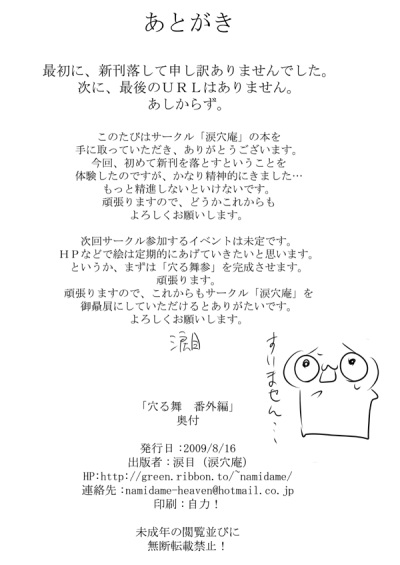 あとがき
最初に、新刊落して申し訳ありませんでした。
次に、最後のＵＲＬはありません。
あしからず。
このたびはサークル「涙穴庵」の本を
手に取っていただき、ありがとうございます。
今回、初めて新刊を落とすということを
体験したのですが、かなり精神的にきました…
もっと精進しないといけないです。
頑張りますので、どうかこれからも
よろしくお願いします。
次回サークル参加するイベントは未定です。
ＨＰなどで絵は定期的にあげていきたいと思います。
というか、まずは「穴る舞参」を完成させます。
頑張ります。
頑張りますので、これからもサークル「涙穴庵」を
御贔屓にしていただけるとありがたいです。
よろしくお願いします。
涙目
すいません…
「穴る舞　番外編」
奥付
発行日:2009/8/16
出版者：涙目（涙穴庵）
HP:http://green.ribbon.to/~namidame/
連絡先:namidame-heaven@hotmail.co.jp
印刷：自力！
未成年の閲覧並びに
無断転載禁止！